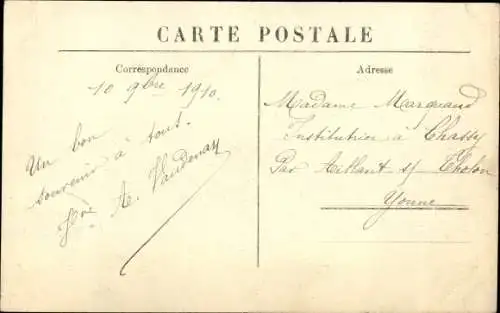 CARTE POSTALE
Correspondance
10 9bre 1910.
Un bon
souvenir à tout.
A. Vaudenay
Adresse
Madame Marquand
Institution à Chassy
Par Aillant s/ Tholon
Yonne